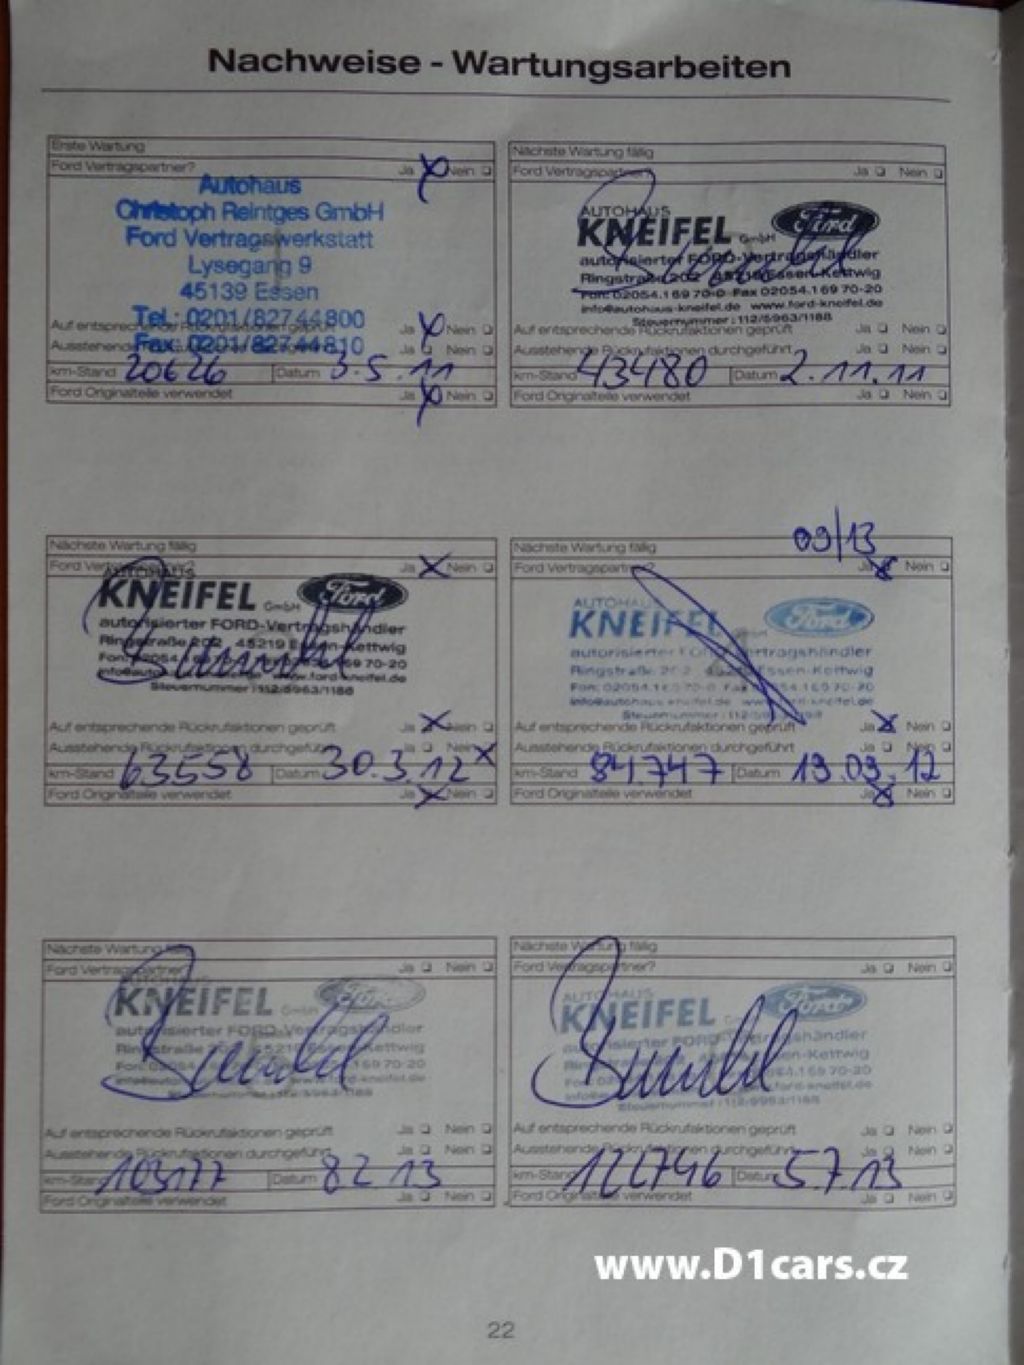 Nachweise - Wartungsarbeiten
Erste Wartung
Ford Vertragspartner? Ja Nein
Autohaus
Christoph Reintges GmbH
Ford Vertragswerkstatt
Lysegang 9
45139 Essen
Tel.: 0201/82744800
Auf entsprechende Rückrufaktionen geprüft Ja Nein
Fax: 0201/82744810
Ausstehende Ja Nein
km-Stand 20626 Datum 3.5.11
Ford Originalteile verwendet Ja Nein
Nächste Wartung fällig
Ford Vertragspartner? Ja Nein
AUTOHAUS
KNEIFEL GmbH Ford
autorisierter FORD-Vertragshändler
Ringstraße 202 45219 Essen-Kettwig
Fon: 02054.169 70-0 Fax 02054.169 70-20
info@autohaus-kneifel.de www.ford-kneifel.de
Steuernummer: 112/5963/1188
Auf entsprechende Rückrufaktionen geprüft Ja Nein
Ausstehende Rückrufaktionen durchgeführt Ja Nein
km-Stand 43480 Datum 2.11.11
Ford Originalteile verwendet Ja Nein
Nächste Wartung fällig
Ford Vertragspartner? Ja Nein
AUTOHAUS
KNEIFEL GmbH Ford
autorisierter FORD-Vertragshändler
Ringstraße 202 45219 Essen-Kettwig
Fon: 02054. 169 70-20
www.ford-kneifel.de
Steuernummer: 112/5963/1188
Auf entsprechende Rückrufaktionen geprüft Ja Nein
Ausstehende Rückrufaktionen durchgeführt Ja Nein
km-Stand 63558 Datum 30.3.12
Ford Originalteile verwendet Ja Nein
Nächste Wartung fällig 09/13
Ford Vertragspartner? Ja Nein
AUTOHAUS
KNEIFEL GmbH Ford
autorisierter FORD-Vertragshändler
Ringstraße 202 45219 Essen-Kettwig
Fon: 02054.169 70-0 Fax 169 70-20
info@autohaus-kneifel.de www.ford-kneifel.de
Steuernummer: 112/
Auf entsprechende Rückrufaktionen geprüft Ja Nein
Ausstehende Rückrufaktionen durchgeführt Ja Nein
km-Stand 84.747 Datum 19.09.12
Ford Originalteile verwendet Ja Nein
Nächste Wartung fällig
Ford Vertragspartner? Ja Nein
KNEIFEL GmbH Ford
autorisierter FORD-Vertragshändler
Ringstraße Essen-Kettwig
169 70-20
Auf entsprechende Rückrufaktionen geprüft Ja Nein
Ausstehende Rückrufaktionen durchgeführt Ja Nein
km-Stand 103177 Datum 8 2 13
Ford Originalteile verwendet Ja Nein
Nächste Wartung fällig
Ford Vertragspartner? Ja Nein
AUTOHAUS
KNEIFEL GmbH Ford
autorisierter Vertragshändler
Essen-Kettwig
169 70-20
Steuernummer: 112/5963/1188
Auf entsprechende Rückrufaktionen geprüft Ja Nein
Ausstehende Rückrufaktionen durchgeführt Ja Nein
km-Stand 122746 Datum 5.7.13
Ford Originalteile verwendet Ja Nein
www.D1cars.cz
22